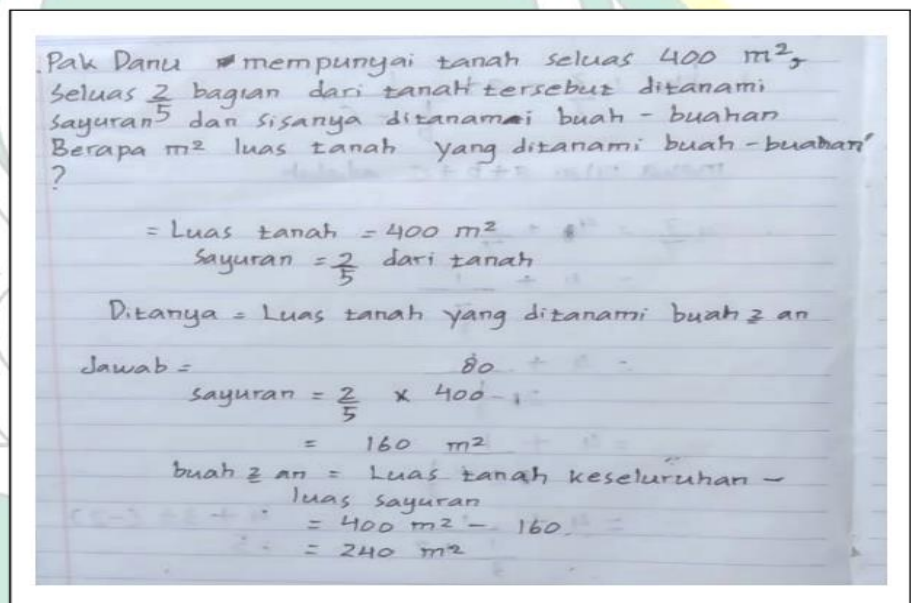 Pak Danu mempunyai tanah seluas 400 m²,
seluas 2/5 bagian dari tanah tersebut ditanami
sayuran dan sisanya ditanami buah - buahan
Berapa m² luas tanah yang ditanami buah - buahan
?
= Luas tanah = 400 m²
Sayuran = 2/5 dari tanah
Ditanya = Luas tanah yang ditanami buah 2 an
Jawab =
80
sayuran = 2/5 x 400
= 160 m²
buah 2 an = Luas tanah keseluruhan -
luas sayuran
= 400 m² - 160
= 240 m²